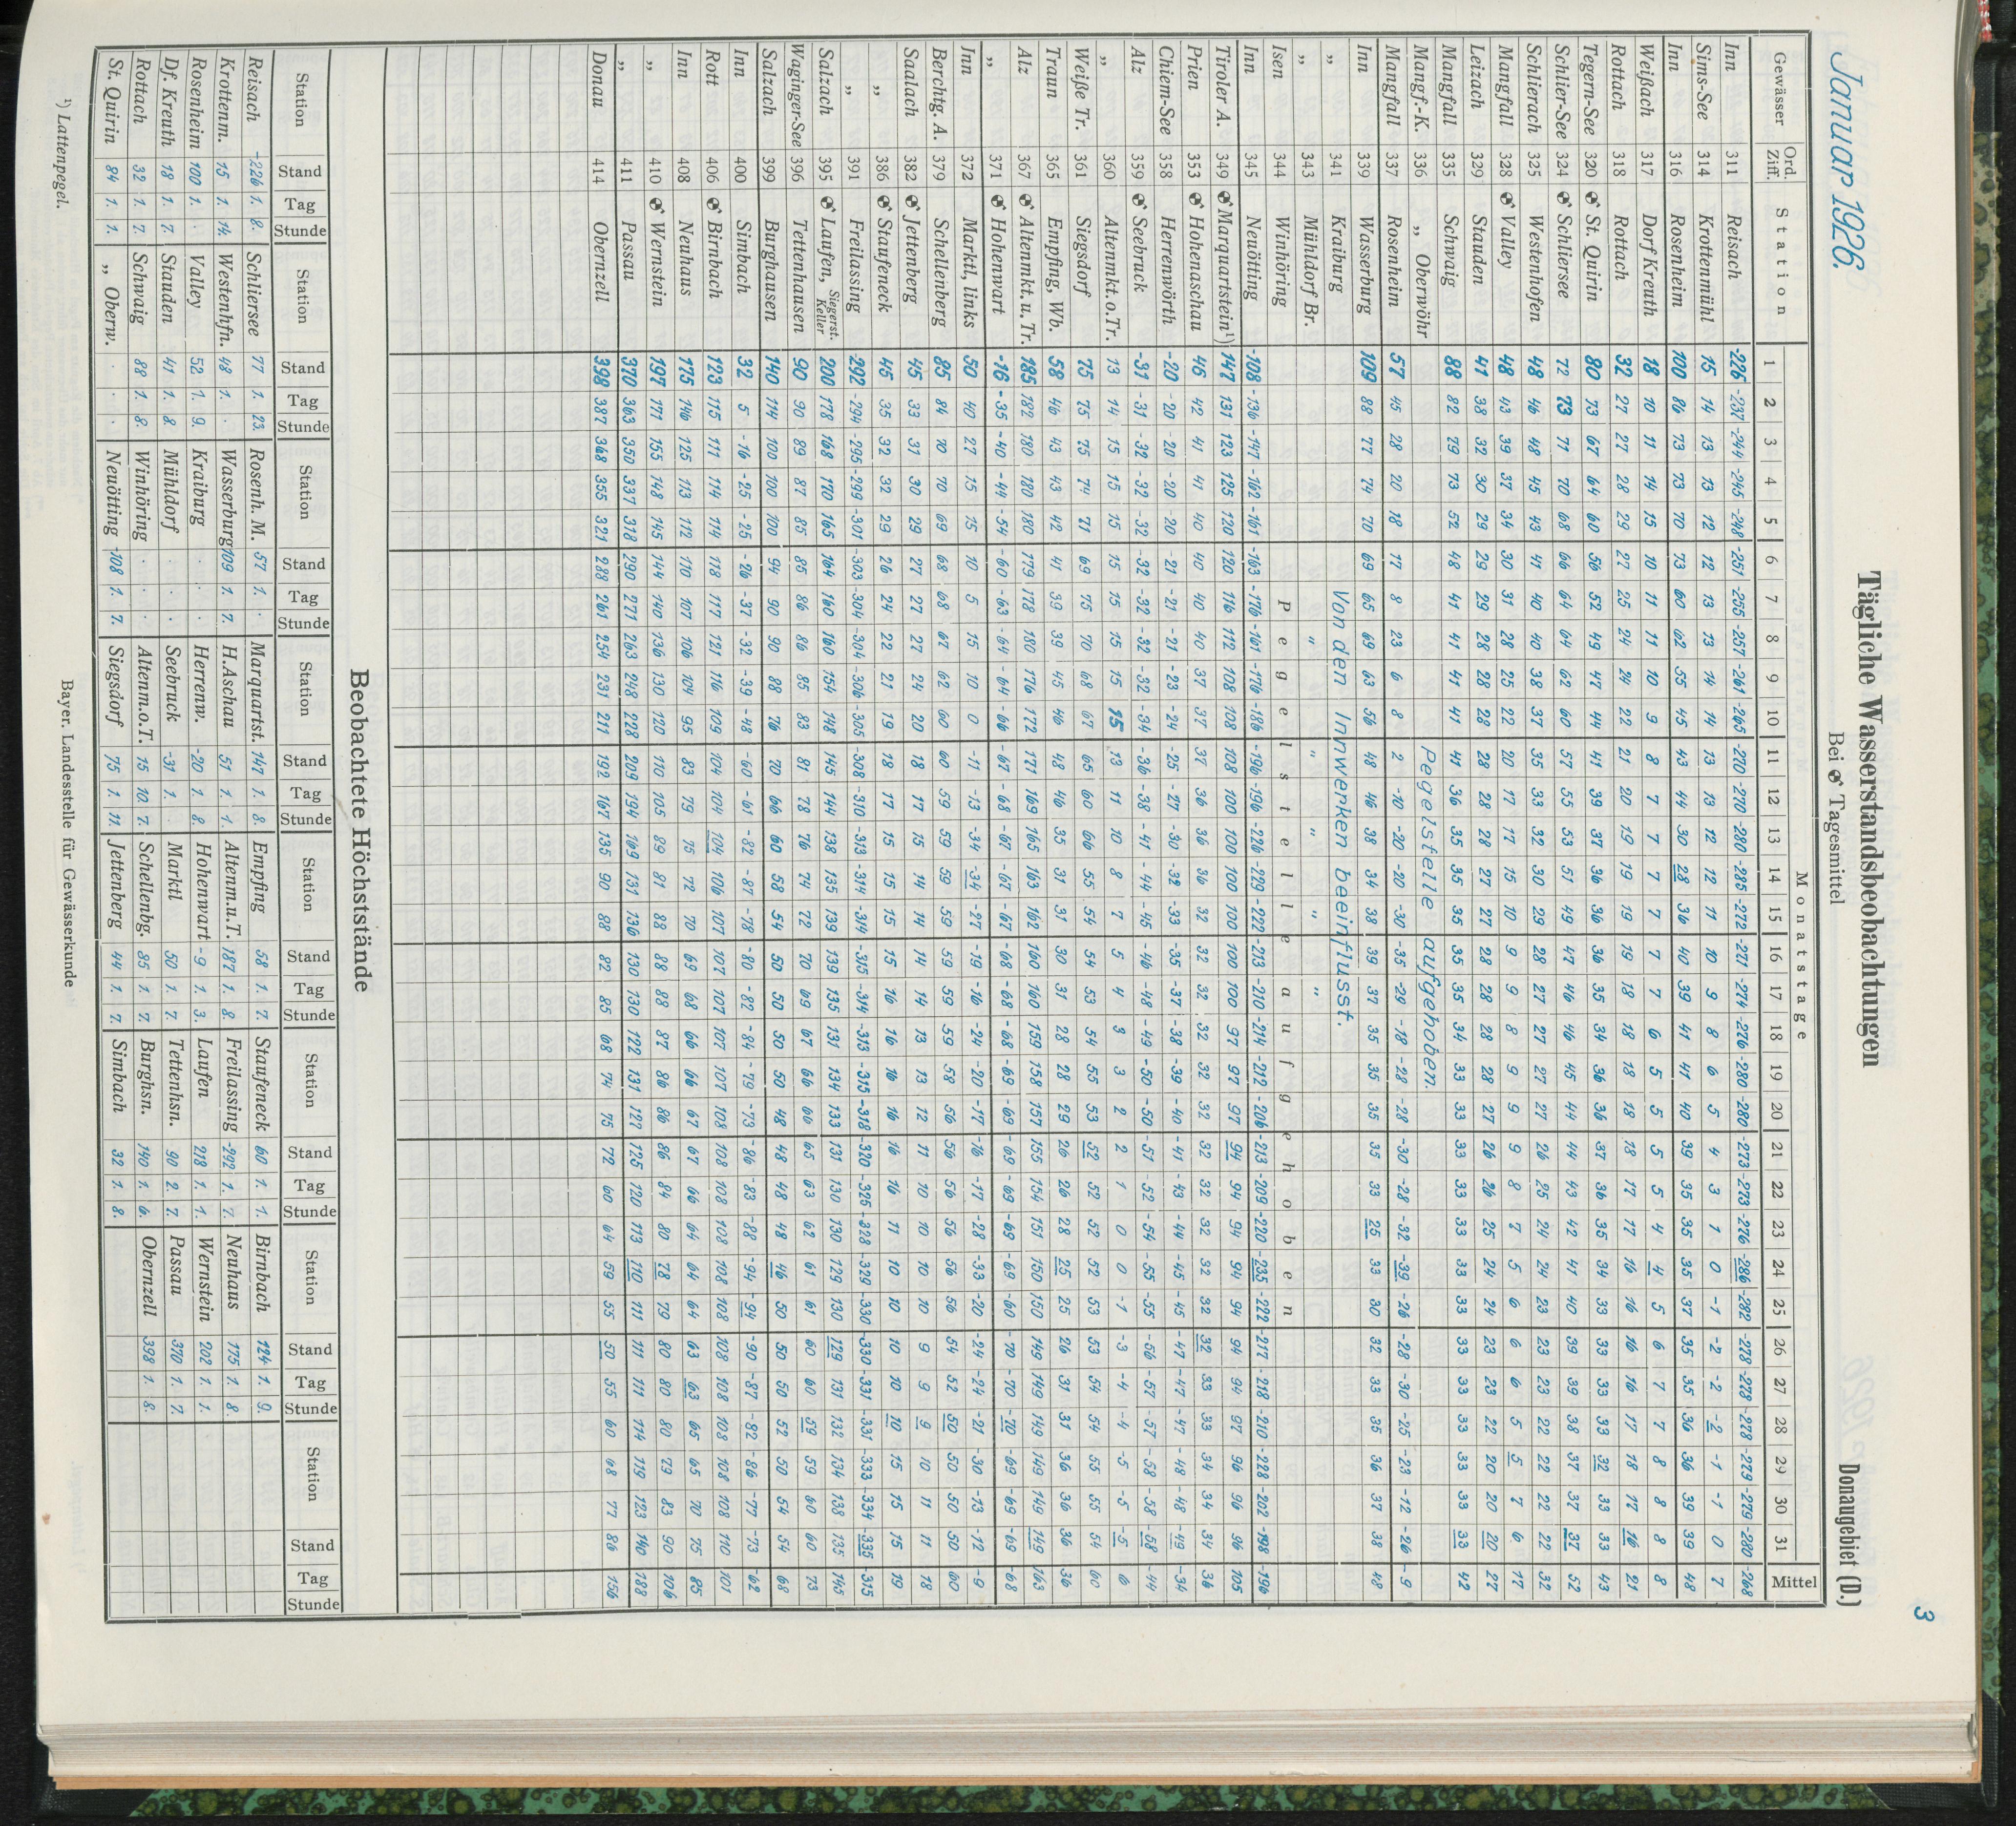 Januar 1926.
Tägliche Wasserstandsbeobachtungen
Donaugebiet (D.)
3
Bei Tagesmittel
Gewässer Ord. Ziff. Station Monatstage
1 2 3 4 5 6 7 8 9 10 11 12 13 14 15 16 17 18 19 20 21 22 23 24 25 26 27 28 29 30 31 Mittel
Inn 311 Reisach -226 -237 -244 -245 -248 -251 -255 -257 -261 -265 -270 -270 -280 -285 -272 -271 -274 -276 -280 -280 -273 -273 -276 -286 -282 -278 -278 -278 -279 -279 -280 -268
Sims-See 314 Krottenmühl 15 14 13 13 12 12 13 13 14 14 13 13 12 12 11 10 9 8 6 5 4 3 1 0 -1 -2 -2 -2 -1 -1 0 7
Inn 316 Rosenheim 100 86 73 73 70 73 60 62 55 45 43 44 30 28 36 40 39 41 41 40 39 35 35 35 37 35 35 36 36 39 39 48
Weißach 317 Dorf Kreuth 18 10 11 14 15 10 11 11 10 9 8 7 7 7 7 7 7 6 5 5 5 5 4 4 5 6 7 7 8 8 8 8
Rottach 318 Rottach 32 27 27 28 29 27 25 24 24 22 21 20 19 19 19 19 18 18 18 18 18 17 17 16 16 16 16 17 18 17 16 21
Tegern-See 320 St. Quirin 80 73 67 64 60 56 52 49 47 44 41 39 37 36 36 36 35 34 36 36 37 36 35 34 33 33 33 33 32 33 33 43
Schlier-See 324 Schliersee 72 73 71 70 68 66 64 64 62 60 57 55 53 51 49 47 46 46 45 44 44 43 42 41 40 39 39 38 37 37 37 52
Schlierach 325 Westenhofen 48 46 48 45 43 41 40 40 38 37 35 33 32 30 29 28 27 27 27 27 26 25 24 24 23 23 23 22 22 22 22 32
Mangfall 328 Valley 48 43 39 37 34 30 31 28 25 22 20 17 17 15 10 9 9 8 9 9 9 8 7 5 6 6 6 5 5 7 6 17
Leizach 329 Stauden 41 38 32 30 29 29 29 28 28 28 28 28 28 27 27 28 28 28 28 27 26 26 25 24 24 23 23 22 20 20 20 27
Mangfall 335 Schwaig 88 82 79 73 52 48 41 41 41 41 41 36 35 35 35 35 35 34 33 33 33 33 33 33 33 33 33 33 33 33 33 42
Mangf.-K. 336 „ Oberwöhr Pegelstelle aufgehoben.
Mangfall 337 Rosenheim 57 45 28 20 18 17 8 23 6 8 2 -10 -20 -20 -30 -35 -29 -18 -28 -28 -30 -28 -32 -39 -26 -28 -30 -25 -23 -12 -26 -9
Inn 339 Wasserburg 109 88 77 74 70 69 65 69 63 56 48 46 38 34 38 39 37 35 35 35 35 33 25 33 30 32 33 35 36 37 38 48
„ 341 Kraiburg Von den Innwerken beeinflusst.
„ 343 Mühldorf Br. „ „ „ „ „
Isen 344 Winhöring Pegelstelle aufgehoben
Inn 345 Neuötting -108 -136 -147 -162 -161 -163 -176 -161 -176 -186 -196 -196 -226 -229 -222 -213 -210 -214 -212 -206 -213 -209 -220 -235 -222 -217 -218 -210 -228 -202 -198 -196
Tiroler A. 349 Marquartstein¹) 147 131 123 125 120 120 116 112 108 108 108 100 100 100 100 100 100 97 97 97 94 94 94 94 94 94 94 97 96 96 96 105
Prien 353 Hohenaschau 46 42 41 41 40 40 40 40 37 37 37 36 36 36 32 32 32 32 32 32 32 32 32 32 32 32 33 33 34 34 34 36
Chiem-See 358 Herrenwörth -20 -20 -20 -20 -20 -21 -21 -21 -23 -24 -25 -27 -30 -32 -33 -35 -37 -38 -39 -40 -41 -43 -44 -45 -45 -47 -47 -47 -48 -48 -49 -34
Alz 359 Seebruck -31 -31 -32 -32 -32 -32 -32 -32 -32 -34 -36 -38 -41 -44 -45 -46 -48 -49 -50 -50 -51 -52 -54 -55 -55 -56 -57 -57 -58 -58 -58 -44
„ 360 Altenmkt.o.Tr. 13 14 15 15 15 15 15 15 15 15 13 11 10 8 7 5 4 3 3 2 2 1 0 0 -1 -3 -4 -4 -5 -5 -5 6
Weiße Tr. 361 Siegsdorf 75 75 75 74 71 69 75 70 68 67 65 60 66 55 54 54 53 54 55 53 52 52 52 52 53 53 54 54 55 55 54 60
Traun 365 Empfing, Wb. 58 46 43 43 42 41 39 39 45 46 48 46 35 31 31 30 31 28 28 29 26 26 28 25 25 26 31 31 36 36 36 36
Alz 367 Altenmkt. u. Tr. 185 182 180 180 180 179 178 180 176 172 171 169 165 163 162 160 160 159 158 157 155 154 151 150 150 149 149 149 149 149 149 163
„ 371 Hohenwart -16 -35 -40 -44 -54 -60 -63 -64 -64 -66 -67 -68 -67 -67 -67 -68 -68 -68 -69 -69 -69 -69 -69 -69 -60 -70 -70 -70 -69 -69 -69 -68
Inn 372 Marktl, links 50 40 27 15 15 10 5 15 10 0 -11 -13 -34 -34 -27 -19 -16 -24 -20 -17 -16 -17 -28 -33 -20 -24 -24 -21 -30 -13 -12 -9
Berchtg. A. 379 Schellenberg 85 84 70 70 69 68 68 67 62 60 60 59 59 59 59 59 59 59 58 56 56 56 56 56 56 54 52 50 50 50 50 60
Saalach 382 Jettenberg 45 33 31 30 29 27 27 27 24 20 18 17 15 14 14 14 14 13 13 12 11 10 10 10 10 9 9 9 10 11 11 18
„ 386 Staufeneck 45 35 32 32 29 26 24 22 21 19 18 17 15 15 15 15 16 16 16 16 16 16 11 10 10 10 10 10 15 15 15 19
„ 391 Freilassing -292 -294 -295 -299 -301 -303 -304 -304 -306 -305 -308 -310 -313 -314 -314 -315 -314 -313 -315 -318 -320 -325 -328 -329 -330 -330 -331 -331 -333 -334 -335 -315
Salzach 395 Laufen, Siegerst. Keller 200 178 168 170 165 164 160 160 154 148 145 144 138 135 139 139 135 131 134 133 131 130 130 129 130 129 131 132 134 138 135 145
Waginger-See 396 Tettenhausen 90 90 89 87 85 85 86 86 85 83 81 78 76 74 72 70 69 67 66 66 65 63 62 61 61 60 60 59 59 60 60 73
Salzach 399 Burghausen 140 114 100 100 100 94 90 90 88 76 70 66 60 58 54 50 50 50 50 48 48 48 48 46 50 50 50 52 50 54 54 68
Inn 400 Simbach 32 5 -16 -25 -25 -26 -37 -32 -39 -48 -60 -61 -82 -87 -78 -80 -82 -84 -79 -73 -86 -83 -88 -94 -94 -90 -87 -82 -86 -77 -73 -62
Rott 406 Birnbach 123 115 111 114 114 118 117 121 116 109 104 104 104 106 107 107 107 107 107 108 108 108 108 108 108 108 108 108 108 108 110 101
Inn 408 Neuhaus 175 146 125 113 112 110 107 106 104 95 83 79 75 72 70 69 68 66 66 67 67 66 64 64 64 63 63 65 65 70 75 85
„ 410 Wernstein 197 171 155 148 145 144 140 136 130 120 110 105 89 81 88 88 88 87 86 86 86 84 80 78 79 80 80 80 79 83 90 106
„ 411 Passau 370 363 350 337 318 290 271 263 248 228 209 194 169 131 136 130 130 122 131 127 125 120 113 110 111 111 111 114 119 123 140 188
Donau 414 Obernzell 398 387 368 355 321 288 261 254 231 211 192 167 135 90 88 82 85 68 74 75 72 60 64 59 55 50 55 60 68 77 86 156
Beobachtete Höchststände
Station Stand Tag Stunde Station Stand Tag Stunde Station Stand Tag Stunde Station Stand Tag Stunde Station Stand Tag Stunde Station Stand Tag Stunde Station Stand Tag Stunde Station Stand Tag Stunde
Reisach -226 1. 8. Schliersee 77 1. 23. Rosenh. M. 57 1. . Marquartst. 147 1. 8. Empfing 58 1. 7. Staufeneck 60 1. 1. Birnbach 124 1. 9.
Krottenm. 15 1. 14. Westenhfn. 48 1. . Wasserburg 109 1. 7. H.Aschau 51 1. 1. Altenm.u.T. 187 1. 8. Freilassing -292 1. 7. Neuhaus 175 1. 8.
Rosenheim 100 1. . Valley 52 1. 9. Kraiburg . . . Herrenw. -20 1. 8. Hohenwart -9 1. 3. Laufen 218 1. 1. Wernstein 202 1. 1.
Df. Kreuth 18 1. 7. Stauden 41 1. 8. Mühldorf . . . Seebruck -31 1. . Marktl 50 1. 7. Tettenhsn. 90 2. 7. Passau 370 1. 7.
Rottach 32 1. 7. Schwaig 88 1. 8. Winhöring . . . Altenm.o.T. 15 10. 7. Schellenbg. 85 1. 7. Burghsn. 140 1. 6. Obernzell 398 1. 8.
St. Quirin 84 1. 1. „ Oberw. . . . Neuötting -108 1. 7. Siegsdorf 75 1. 11. Jettenberg 44 1. 7. Simbach 32 1. 8.
¹) Lattenpegel.
Bayer. Landesstelle für Gewässerkunde